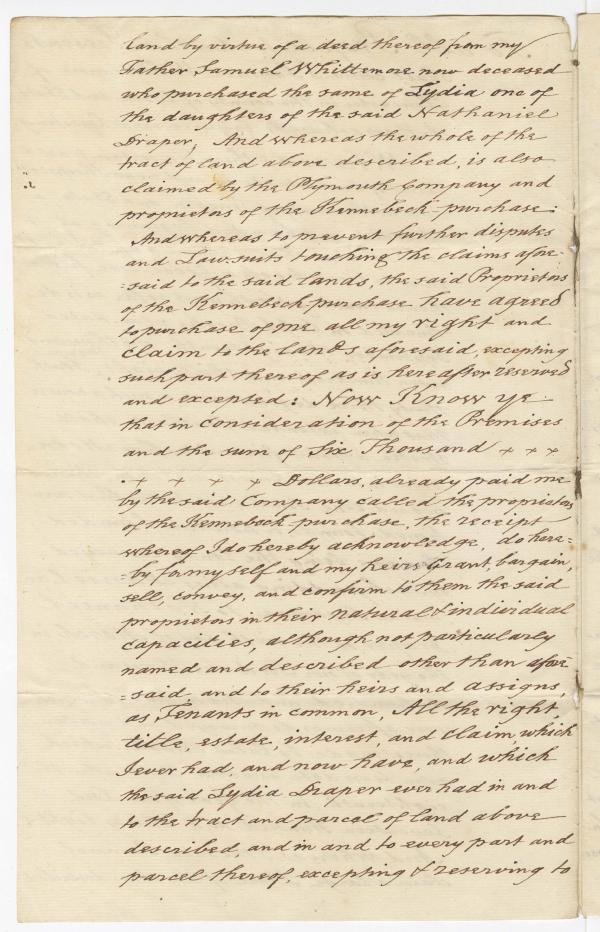 land by virtue of a deed thereof from my
Father Samuel Whittemore now deceased
who purchased the same of Lydia one of
the daughters of the said Nathaniel
Draper, And whereas the whole of the
tract of land above described, is also
claimed by the Plymouth Company and
proprietors of the Kennebeck purchase:
And whereas to prevent further disputes
and Lawsuits touching the claims afore=
=said to the said lands, the said Proprietors
of the Kennebeck purchase have agreed
to purchase of me all my right and
claim to the lands aforesaid, excepting
such part thereof as is hereafter reserved
and excepted: Now Know ye
that in consideration of the Premises
and the sum of Six Thousand + + +
+ + + + Dollars, already paid me
by the said Company called the proprietors
of the Kennebeck purchase, the receipt
whereof I do hereby acknowledge, do here=
=by for my self and my heirs Grant, bargain,
sell, convey, and confirm to them the said
proprietors in their natural & individual
capacities, although not particularly
named and described other than afore
=said, and to their heirs and assigns,
as Tenants in common, All the right,
title, estate, interest, and claim, which
I ever had, and now have, and which
the said Lydia Draper ever had in and
to the tract and parcel of land above
described, and in and to every part and
parcel thereof, excepting & reserving to